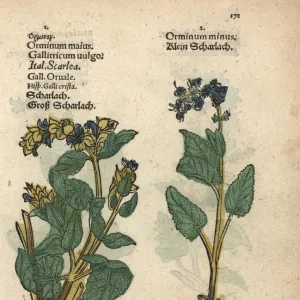 171
1.
Orminum maius.
Gallitricum vulgo.
Ital. Scarlea.
Gall. Oruale.
Hisp. Galli crista.
Scharlach.
Groß Scharlach.
2.
Orminum minus.
Klein Scharlach.